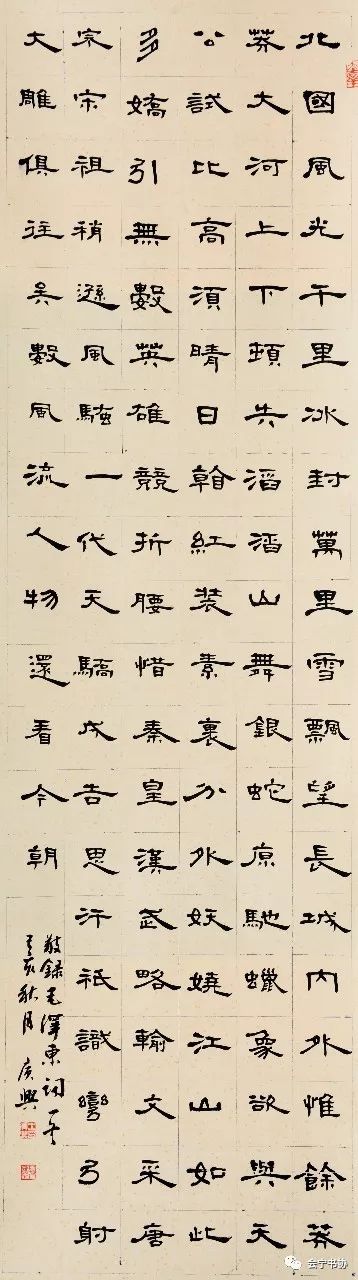 北國風光千里冰封萬里雪飄望長城內外惟餘莽
莽大河上下頓失滔滔山舞銀蛇原馳蠟象欲與天
公試比高須晴日看紅裝素裹分外妖嬈江山如此
多嬌引無數英雄競折腰惜秦皇漢武略輸文采唐
宗宋祖稍遜風騷一代天驕成吉思汗祇識彎弓射
大雕俱往矣數風流人物還看今朝
敬錄毛澤東詞一首
己亥秋月 興
会宁书协